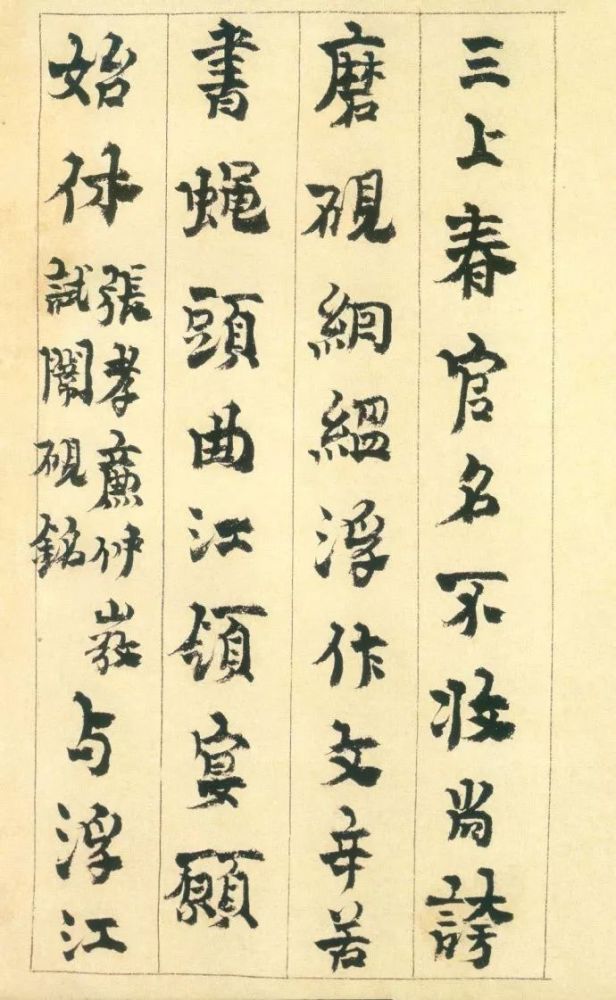 三上春官名不收尚誇
磨硯絪縕浮作文辛苦
書蝇頭曲江領宴願
始休
張孝廉巖
試闈硯銘
与浮江